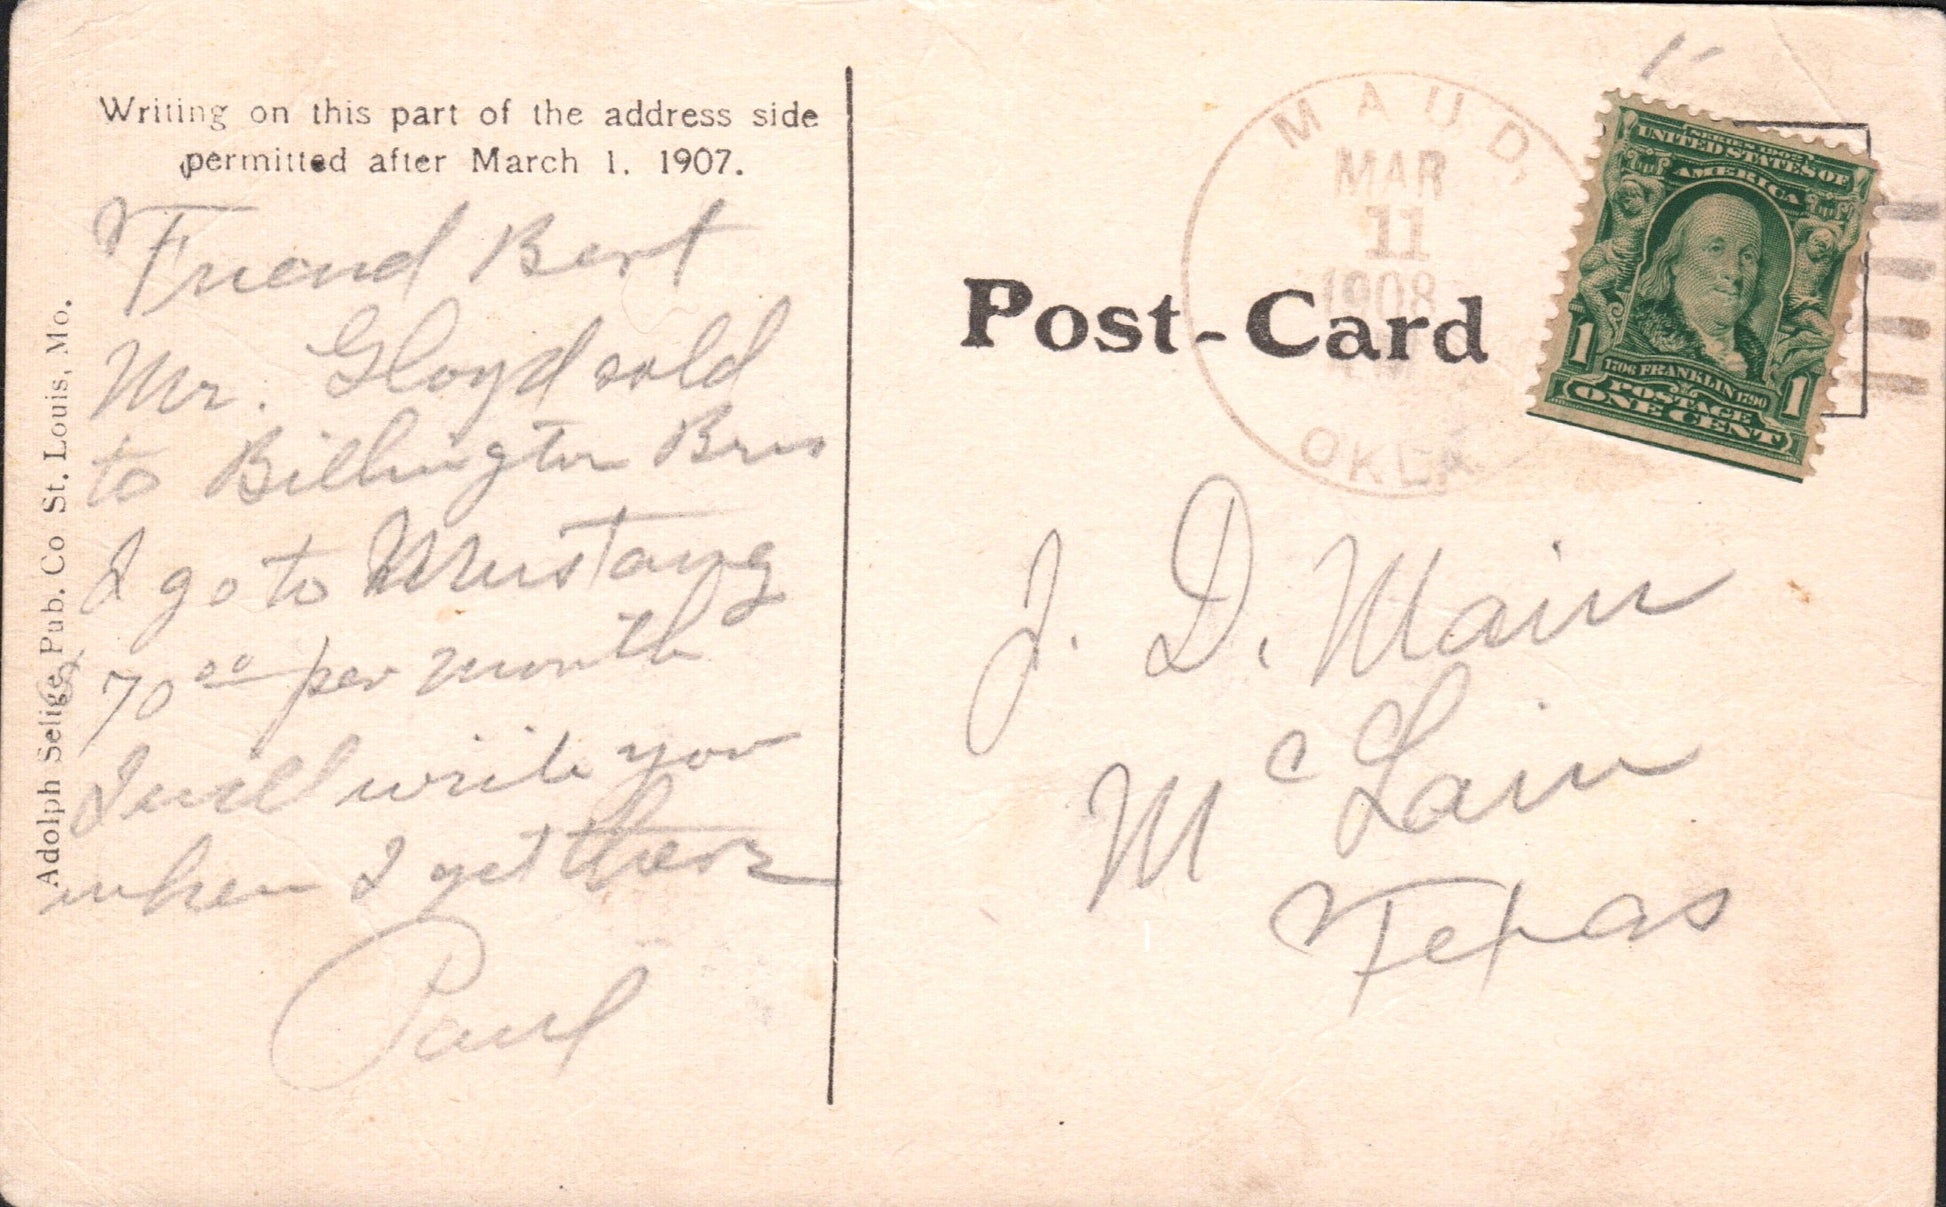 Writing on this part of the address side
permitted after March 1, 1907.
Friend Bert
Mr. Gloyd sold
to Billington Bros
I go to Mustang
70 00 per month
I will write you
when I get there
Paul
Adolph Selige Pub. Co St. Louis, Mo.
Post-Card
MAUD,
MAR
11
1908
OKLA
SERIES 1902
UNITED STATES OF
AMERICA
1706 FRANKLIN 1790
POSTAGE
1 ONE CENT 1
J. D. Main
Mc Lain
Texas